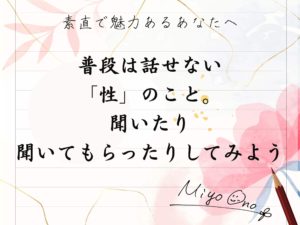 素直で魅力あるあなたへ
普段は話せない
「性」のこと。
聞いたり
聞いてもらったりしてみよう
Miyo Ono